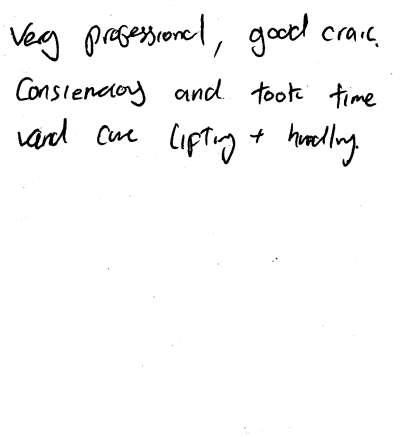 Very professional, good craic.
Consiencious and took time
and care lifting + handling.